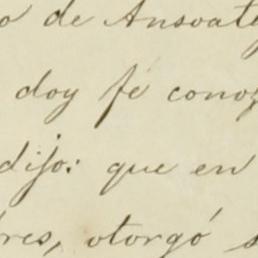 o de Ansoate
doy fé conoz
dijo: que en
res, otorgó s